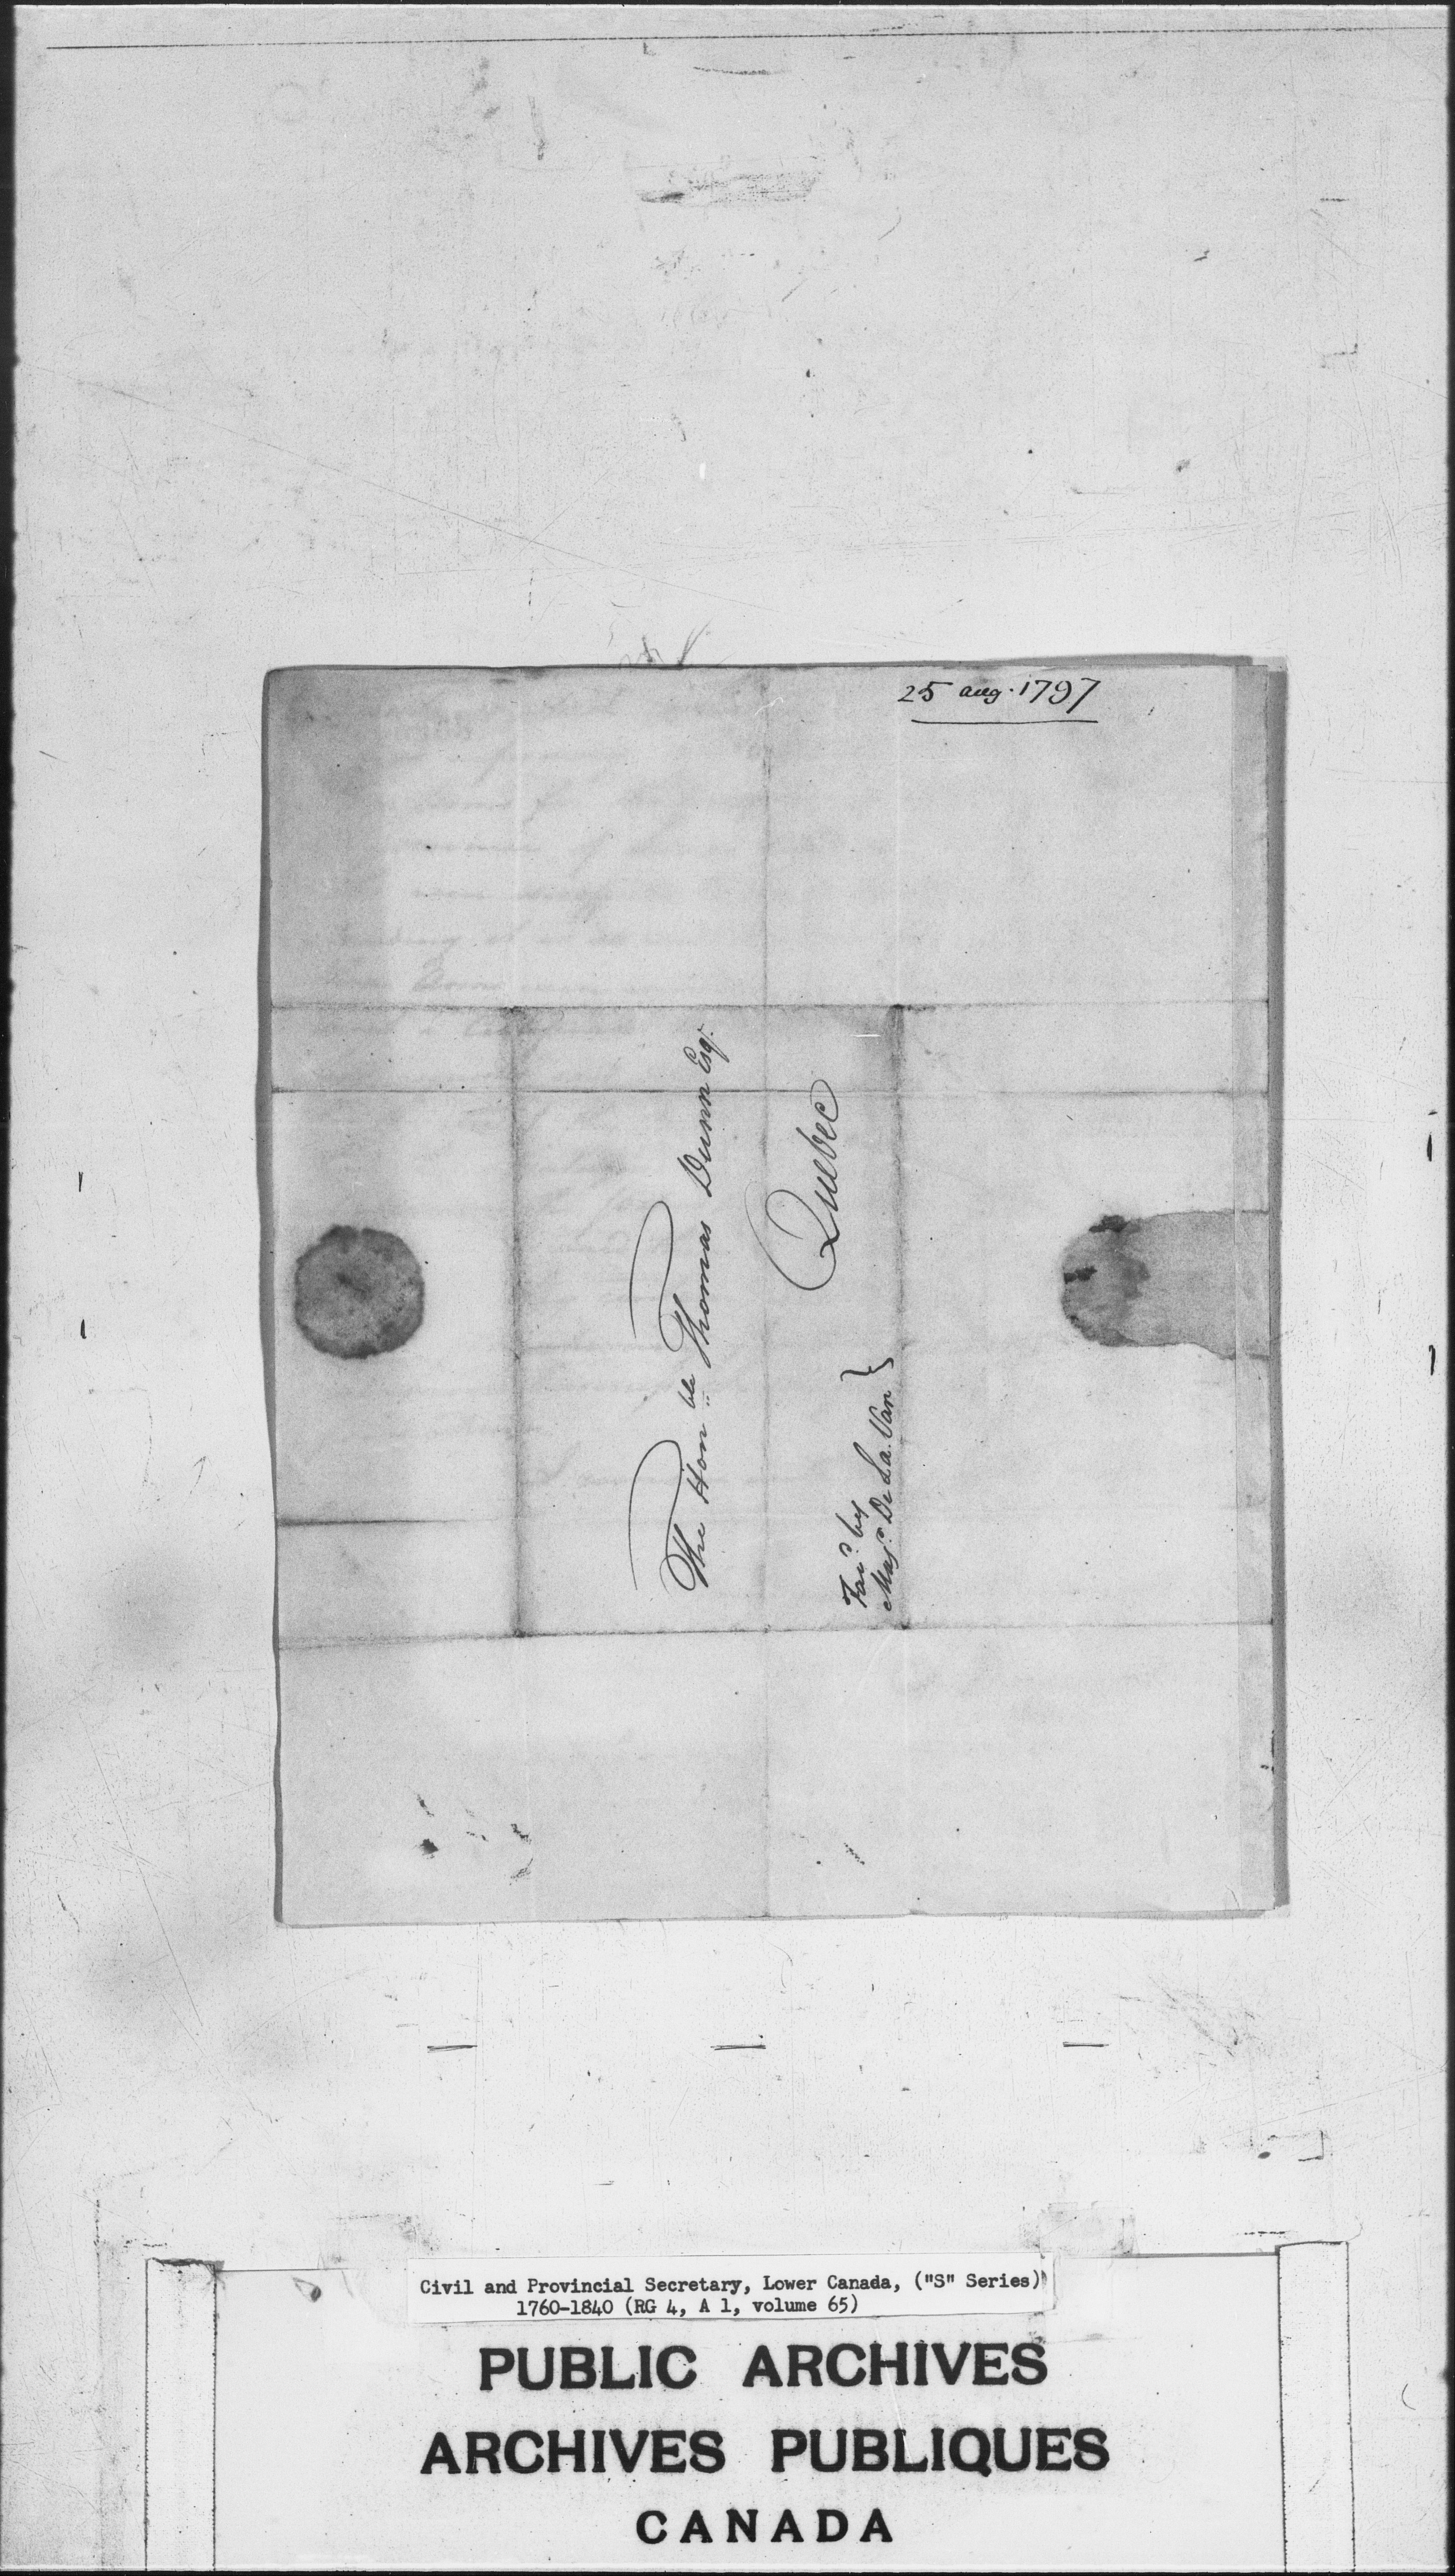 25 aug. 1797
The Honble Thomas Dunn Esqr.
Quebec
Favd. by
Majr. De La Van }
Civil and Provincial Secretary, Lower Canada, ("S" Series)
1760-1840 (RG 4, A 1, volume 65)
PUBLIC ARCHIVES
ARCHIVES PUBLIQUES
CANADA